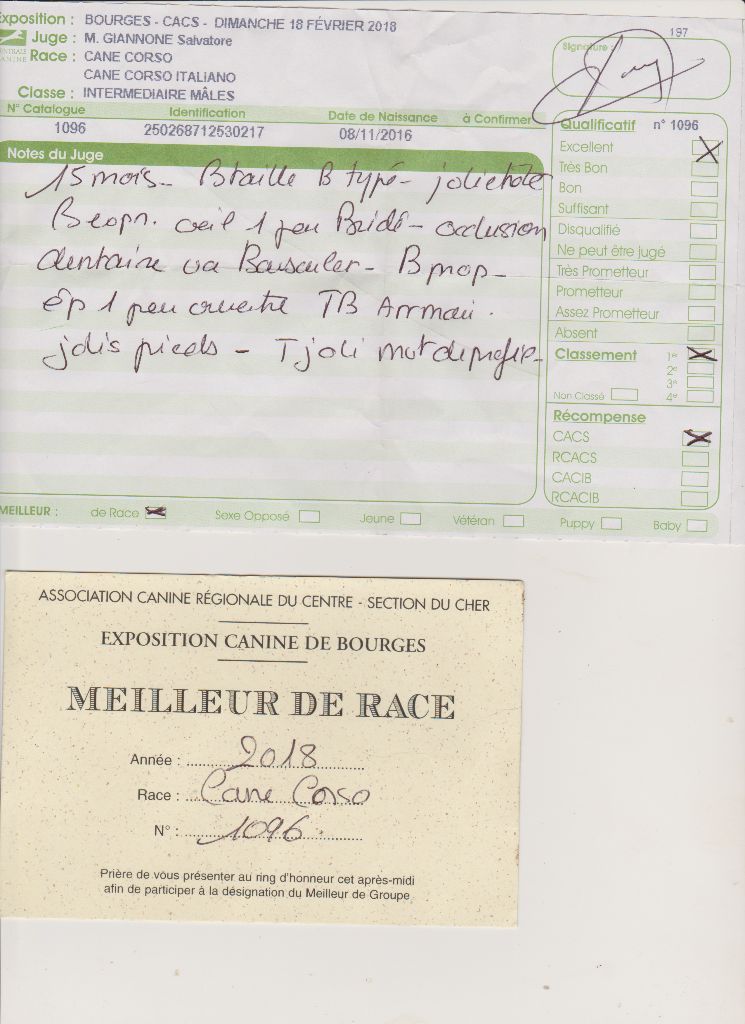 Exposition : BOURGES - CACS - DIMANCHE 18 FÉVRIER 2018
197
Juge : M. GIANNONE Salvatore
Race : CANE CORSO
CANE CORSO ITALIANO
Classe : INTERMEDIAIRE MÂLES
Signature :
N° Catalogue Identification Date de Naissance à Confirmer
1096 250268712530217 08/11/2016
Notes du Juge
15 mois - B taille B typé - jolie tête
B œil 1 peu Bridé - occlusion
dentaire va - B prop -
ép 1 peu ouverte TB
jolis pieds - T joli
Qualificatif n° 1096
Excellent X
Très Bon
Bon
Suffisant
Disqualifié
Ne peut être jugé
Très Prometteur
Prometteur
Assez Prometteur
Absent
Classement 1er X
2e
3e
Non Classé 4e
Récompense
CACS X
RCACS
CACIB
RCACIB
MEILLEUR : de Race X Sexe Opposé Jeune Vétéran Puppy Baby
ASSOCIATION CANINE RÉGIONALE DU CENTRE - SECTION DU CHER
EXPOSITION CANINE DE BOURGES
MEILLEUR DE RACE
Année : 2018
Race : Cane Corso
N° : 1096
Prière de vous présenter au ring d'honneur cet après-midi
afin de participer à la désignation du Meilleur de Groupe